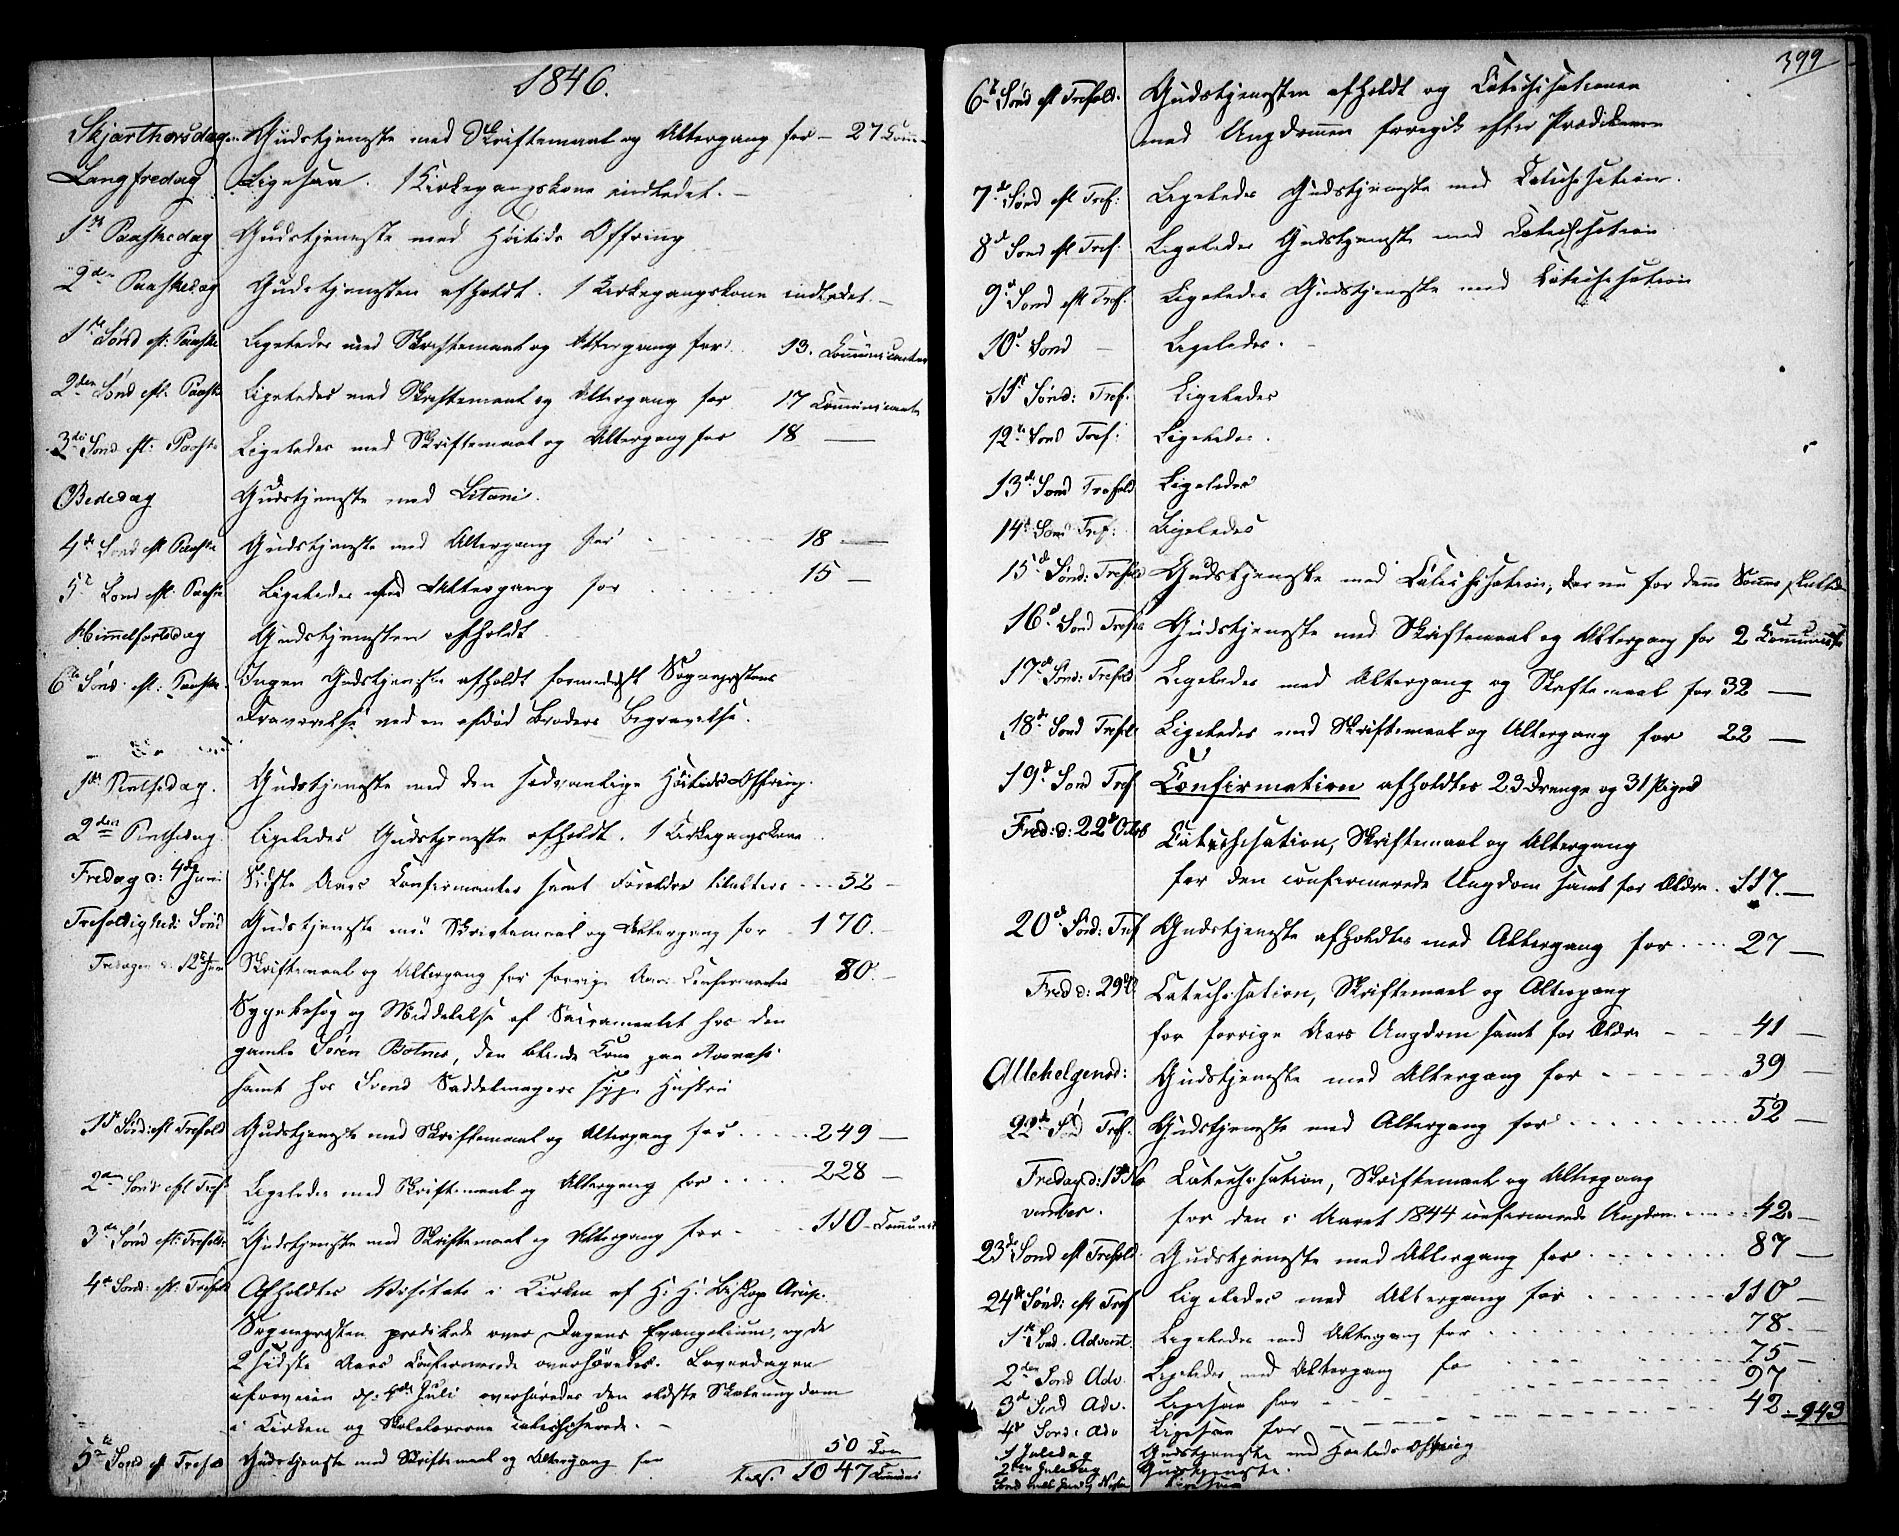 1846.
Skjærthorsdag Gudstjeneste med Skriftemaal og Altergang for — 27 Comm
Langfredag Ligesaa. 1 Kirkegangskone indledet. —
1ste Paaskedag Gudstjeneste med Höitids Offring
2den Paaskedag Gudstjenesten afholdt. 1 Kirkegangskone indledet. —
1ste Sönd eft: Paaske Ligeledes med Skriftemaal og Altergang for 13. Communicanter
2den Sönd eft: Paaske Ligeledes med Skriftemaal og Altergang for 17 Communicanter
3die Sönd eft: Paaske Ligeledes med Skriftemaal og Altergang for 18 —
Bededag Gudstjeneste med Litani.
4de Sönd eft Paaske Gudstjeneste med Altergang for 18 —
5te Sönd eft. Paaske Ligeledes med Altergang for 15 —
Himmelfartsdag Gudstjenesten afholdt
6te Sönd: eft: Paaske. Ingen Gudstjeneste afholdt formedelst Sognepræstens
Fraværelse ved en afdöd Broders Begravelse.
1ste Pintsedag. Gudstjeneste med den sedvanlige Höitids Offring.
2den Pintsedag. Ligeledes Gudstjeneste afholdt. 1 Kirkegangskone
Fredag d: 4de Juni Sidste Aars Confirmanter samt Forældre - - - 32 —
Trefoldighed: Sönd Gudstjeneste med Skriftemaal og Altergang for - 170. —
Fredagen d. 12te Juni Skriftemaal og Altergang for forrige Aars Confirmanter 80. —
Sygebesög og Meddelelse af Sacramentet hos den
gamle Sören Botner, den blinde Kone paa
samt hos Svend Saddelmagers syge Hustru
1ste Sönd: eft Trefold Gudstjeneste med Skriftemaal og Altergang for . . . . . 249 —
2den Sönd eft Tref: Ligeledes med Skriftemaal og Altergang for . . . . 228 —
3die Sönd eft: Trefoldi Gudstjeneste med Skriftemaal og Altergang for - - 110 - Communi
4de Sönd: eft: Trefold Afholdtes Visitats i Kirken af H: H: Biskop Arup.
Sognepræsten prædikede over Dagens Evangelium, og de
2 sidste Aars Confirmerede overhöredes. Löverdagen
iforveien d: 4de Juli overhöredes den ældste Skoleungdom
i Kirken og Skolelærerne catechiserede. —
5te Sönd eft Trefold Gudstjeneste med Skriftemaal og Altergang for 50 Com
1047 Communi
399
6te Sönd eft Trefold. Gudstjenesten afholdt og Catechisationen
med Ungdommen foregik efter Prædikenen
7de Sönd eft Tref: Ligeledes Gudstjeneste med Catechisation.
8de Sönd eft Tref: Ligeledes Gudstjeneste med Catechisation
9de Sönd eft Tref. Ligeledes Gudstjeneste med Catechisation
10de Sönd — Ligeledes. —
11te Sönd: Tref. Ligeledes
12te Sönd Tref: Ligeledes.
13de Sönd Trefold Ligeledes
14de Sönd Tref: Ligeledes
15de Sönd: Trefold Gudstjeneste med Catechisation, der nu for denne Sommer sluttede
16de Sönd Trefold Gudstjeneste med Skriftemaal og Altergang for 2 Communicanter
17de Sönd: Trefold Ligeledes med Altergang og Skriftemaal for 32 —
18de Sönd Trefold Ligeledes med Skriftemaal og Altergang for 22 —
19de Sönd Tref Confirmation afholdtes 23 Drenge og 31 Piger
Fred: d: 22de Octob Catechisation, Skriftemaal og Altergang
for den confirmerede Ungdom samt for Ældre . 117. —
20de Sönd: Tref Gudstjeneste afholdtes med Altergang for . . . . 27 —
Fred d: 29de Catechisation, Skriftemaal og Altergang
for forrige Aars Ungdom samt for Ældre - - - 41 —
Allehelgensd: Gudstjeneste med Altergang for - - - - - - 39 —
22de Sönd Tref. Gudstjeneste med Altergang for . . . . . . . . . 52 —
Fredag d: 13 No Catechisation, Skriftemaal og Altergang
vember. for den i Aaret 1844 confirmerede Ungdom - - - - - 42. —
23de Sönd eft Trefold. Gudstjeneste med Altergang for . . . . . . . . 87 —
24de Sönd: eft Tref Ligeledes med Altergang for . . . . . . . . 110 —
1ste Sönd. Advent. Ligeledes med Altergang for . . . . . . . . 78. —
2den Sönd Adv. Ligeledes med Altergang for - - - - 75 —
3de Sönd Adv. Ligesaa for - - - - 97
4de Sönd: Adv Ligesaa for - - - - 42 — 943
1 Juledag Gudstjeneste med Höitids Offring
2den Juledag Gudstjeneste.
Ligesaa